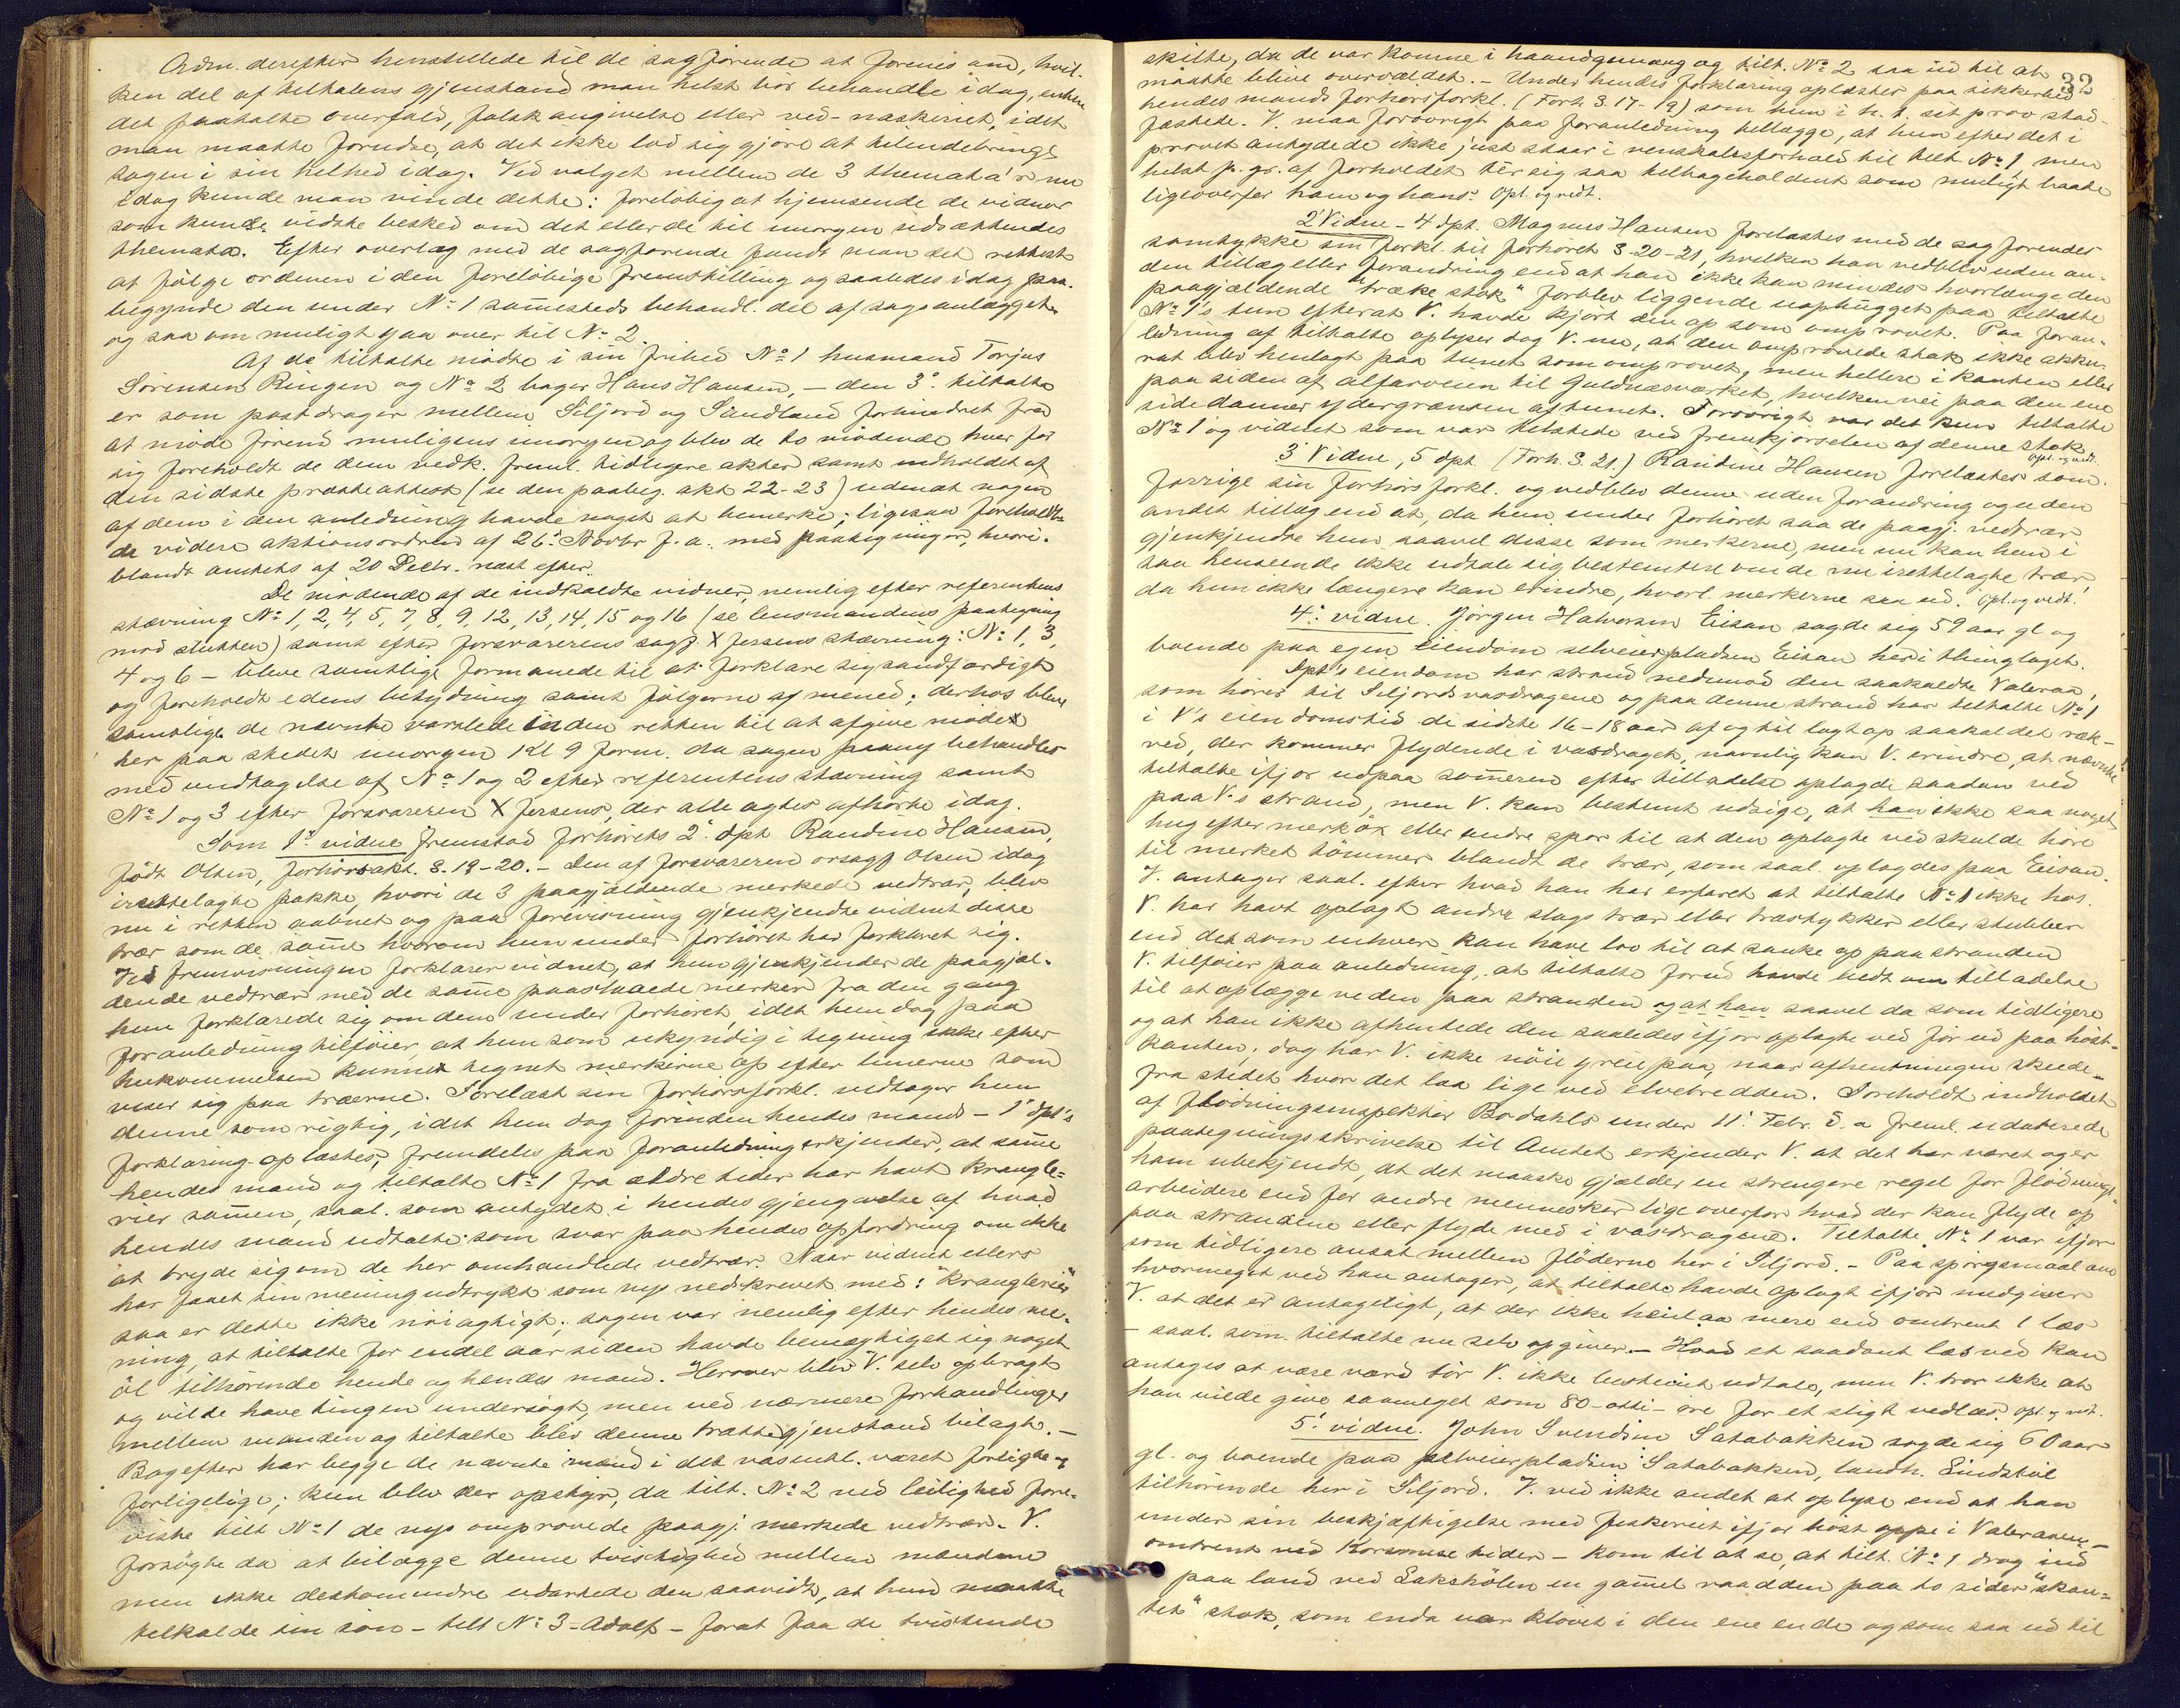 Adm. derefter henstillede til de sagförende at forenes om, hvil-
ken del af tiltalens gjenstand man helst bör behandle idag, enten
det paatalte overfald, falsk angivelse eller ved-naskeriet, idet
man maatte forudse, at det ikke lod sig gjöre at tilendebringe
sagen i sin helhed idag. Ved valget mellem de 3 themata'r nu
idag kunde man vinde dette: foreløbig at hjemsende de vidner
som kunde vidste besked om det eller de til imorgen udsættendes
themata. Efter overlæg med de sagförende fandt man det rettest
at fölge ordenen i den foreløbige fremstilling og saaledes idag paa-
begynde den under No 1 sammesteds behandl. del af sagsanlægget
og saa om muligt gaa over til No 2.
Af de tiltalte mödte i sin frihed No 1 husmand Torjus
Sörensen Ringen og No 2 bager Hans Hansen, – den 3die tiltalte
er som postdrager mellem Siljord og Sundland forhindret fra
at möde förend muligens imorgen og blev de to mödende hver for
sig foreholdt de dem vedk. freml. tidligere akter samt indholdet af
den sidste præsteattest (se den paabeg. akt 22-23) uden at nogen
af dem i den anledning havde noget at bemerke; ligesaa foreholdtes
de videre aktionsordren af 26de Novbr f. a. med paategninger, hvori-
blandt amtets af 20 Decbr. næst efter.
De mödende af de indkaldte vidner, nemlig efter referentens
stævning No 1, 2, 4, 5, 7, 8, 9, 12, 13, 14, 15 og 16 (se lensmandens paategning
mod slutten) samt efter forsvarerens sagf. X fersens stævning: No 1, 3,
4 og 6 – bleve samtlige formanede til at forklare sig sandfærdigt
og foreholdt edens betydning samt fölgerne af mened; derhos bleve
samtlige de nævnte varslede inden retten til at afgive möde
her paa stedet imorgen Kl 9 form. da sagen paany behandles
med undtagelse af No 1 og 2 efter referentens stævning samt
No 1 og 3 efter forsvareren X fersens, der alle agtes afhörte idag.
Som 1ste vidne fremstod forhörets 2 dpt Randine Hansen,
födt Olsen, forhörsakt. S. 19-20. – Den af forsvareren orsagf Olsen idag
irettelagte pakke, hvori de 3 paagjældende merkede vedtrær, blev
nu i retten aabnet og paa forevisning gjenkjendte vidnet disse
trær som de samme hvorom hun under forhöret har forklaret sig.
Ved fremvisningen forklarer vidnet, at hun gjenkjender de paagjæl-
dende vedtrær med de samme paastaaede merker fra den gang
hun forklarede sig om dem under forhöret, idet hun dog paa
foranledning tilföier, at hun som ukyndig i tegning ikke efter
hukommelsen kunnet tegnet merkerne op efter linierne som
viser sig paa træerne. Forelæst sin forhörsforkl. vedtager hun
denne som rigtig, idet hun dog forinden hendes mands – 1 dpt's
forklaring oplæstes, fremdeles paa foranledning erkjender, at samme
hendes mand og tiltalte No 1 fra ældre tider har havt krangle-
rier sammen, saal. som antydet i hendes gjengivelse af hvad
hendes mand udtalte som svar paa hendes opfordring om ikke
at bryde sig om de her omhandlede vedtrær. Naar vidnet ellers
har faaet sin mening udtrykt som nys nedskrevet med: "kranglerier"
saa er dette ikke nöiagtigt; sagen var nemlig efter hendes me-
ning, at tiltalte for endel aar siden havde bemægtiget sig noget
öl tilhörende hende og hendes mand. Herover blev V. selv opbragt
og vilde have tingen undersögt, men ved nærmere forhandlinger
mellem manden og tiltalte blev denne trættegjenstand bilagt. –
Bagefter har begge de nævnte mænd i det væsentl. været forligte og
forligelige; kun blev der opstyr, da tilt. No 2 ved leilighed fore-
viste tilt No 1 de nys omprövede paagj. merkede vedtrær. V.
forsögte da at bilægge denne tvistighed mellem mændene
men ikke destomindre udartede den saavidt, at hun maatte
tilkalde sin sön – tilt No 3 – Adolf – forat faa de tvistende
32
skilte, da de var komne i haandgemæng og tilt. No 2 saa ud til at
maatte blive overvældet. – Under hendes forklaring oplæstes paa sikkerhed
hendes mands forhörsforkl. (Forh. S. 17-19) som hun i h. t. sit prov stad-
fæstede. V. maa forövrigt paa foranledning tillægge, at hun efter det i
provet antydede ikke just staar i venskabsforhold til tilt No 1, men
helst p. gr. af forholdet ter sig saa tilbageholdent som muligt baade
ligeoverfor ham og hans. Opl. og vedt.
2 Vidne – 4 dpt. Magnus Hansen forelæstes med de sagförendes
samtykke sin forkl. til forhöret S. 20-21, hvilken han vedblev uden an-
den tillæg eller forandring end at han ikke kan mindes hvorlænge den
paagjældende "træke stok" forblev liggende uophugget paa tiltalte
No 1's tun efterat V. havde kjört den op som omprövet. Paa foran-
ledning af tiltalte oplyser dog V. nu, at den omprövede stok ikke akku-
rat blev henlagt paa tunet som omprövet, men hellere i kanten eller
paa siden af alfarveien til Guldnesværket, hvilken vei paa den ene
side danner ydergrænsen af tunet. Forövrigt var det kun tiltalte
No 1 og vidnet som var tilstede ved fremkjörselen af denne stok.
Opl. og vedt.
3 Vidne, 5 dpt. (Forh. S. 21.) Randine Hansen forelæstes som
forrige sin forhörsforkl. og vedblev denne uden forandring og uden
andet tillæg end at, da hun under forhöret saa de paagj. vedtrær,
gjenkjendte hun saavel disse som merkerne, men nu kan hun i
saa henseende ikke udtale sig bestemtere om de nu irettelagte trær,
da hun ikke længere kan erindre, hvorl. merkerne saa ud. Opl. og vedt.
4de vidne. Jörgen Halvorsen Eisan sagde sig 59 aar gl og
boende paa egen Eiendom selveierpladsen Eisan her i thinglaget.
Dpt's eiendom har strand nedimod den saakaldte Valeraa,
som hörer til Siljordsvasdragene og paa denne strand har tiltalte No 1
i V's eiendomstid de sidste 16-18 aar af og til lagt op saakaldet ræk-
ved, der kommer flydende i vasdraget, navnlig kan V. erindre, at nævnte
tiltalte ifjor udpaa sommeren efter tilladelse oplagde saadan ved
paa V's strand, men V. kan bestemt udsige, at han ikke saa noget
hug efter merköx eller andre spor til at den oplagte ved skulde höre
til merket tömmer blandt de trær, som saal. oplagdes paa Eisan.
V. antager saal. efter hvad han har erfaret at tiltalte No 1 ikke hos
V. har havt oplagt andre slags trær eller træstykker eller stubber
end det som enhver kan have lov til at sanke op paa stranden.
V. tilföier paa anledning, at tiltalte forud havde bedt om tilladelse
til at oplægge veden paa stranden og at han saavel da som tidligere
og at han ikke afhentede den saaledes ifjor oplagte ved för ud paa höst-
kanten; dog har V. ikke nöie greie paa, naar afhentningen skede
fra stedet hvor det laa lige ved elvebredden. Foreholdt indholdet
af flödningsinspektör Bodahls under 11te Febr. d. a freml. udaterede
paategningsskrivelse til Amtet erkjender V. at det har været og er
ham ubekjendt, at det maaske gjælder en strengere regel for flödnings-
arbeidere end for andre mennesker lige overfor hvad der kan flyde op
paa strandene eller flyde ned i vasdragene. Tiltalte No 1 var ifjor
som tidligere ansat mellem flöderne her i Siljord. – Paa spörgsmaal om
hvormeget ved han antager, at tiltalte havde oplagt ifjor medgiver
V. at det er antageligt, at der ikke henlaa mere end omtrent 1 læs
– saal. som tiltalte nu selv opgiver. – Hvad et saadant læs ved kan
antages at være værd tör V. ikke bestemt udtale, men V. tror ikke at
han vilde give saameget som 80 – otti – öre for et sligt vedlæs. Opl. og vedt.
5te vidne. John Svendsen Satabakken sagde sig 60 aar
gl. og boende paa selveierpladsen Satabakken, landh. Lindstöl
tilhörende her i Siljord. V. ved ikke andet at oplyse end at han
under sin beskjæftigelse med fiskeriet ifjor höst oppe i Valeraaen –
omtrent ved Korsmesse tider – kom til at se, at tilt. No 1 drog ind
paa land ved Lakshölen en gammel raadden paa to sider "skan-
tet" stok, som enda var klövet i den ene ende og som saa ud til